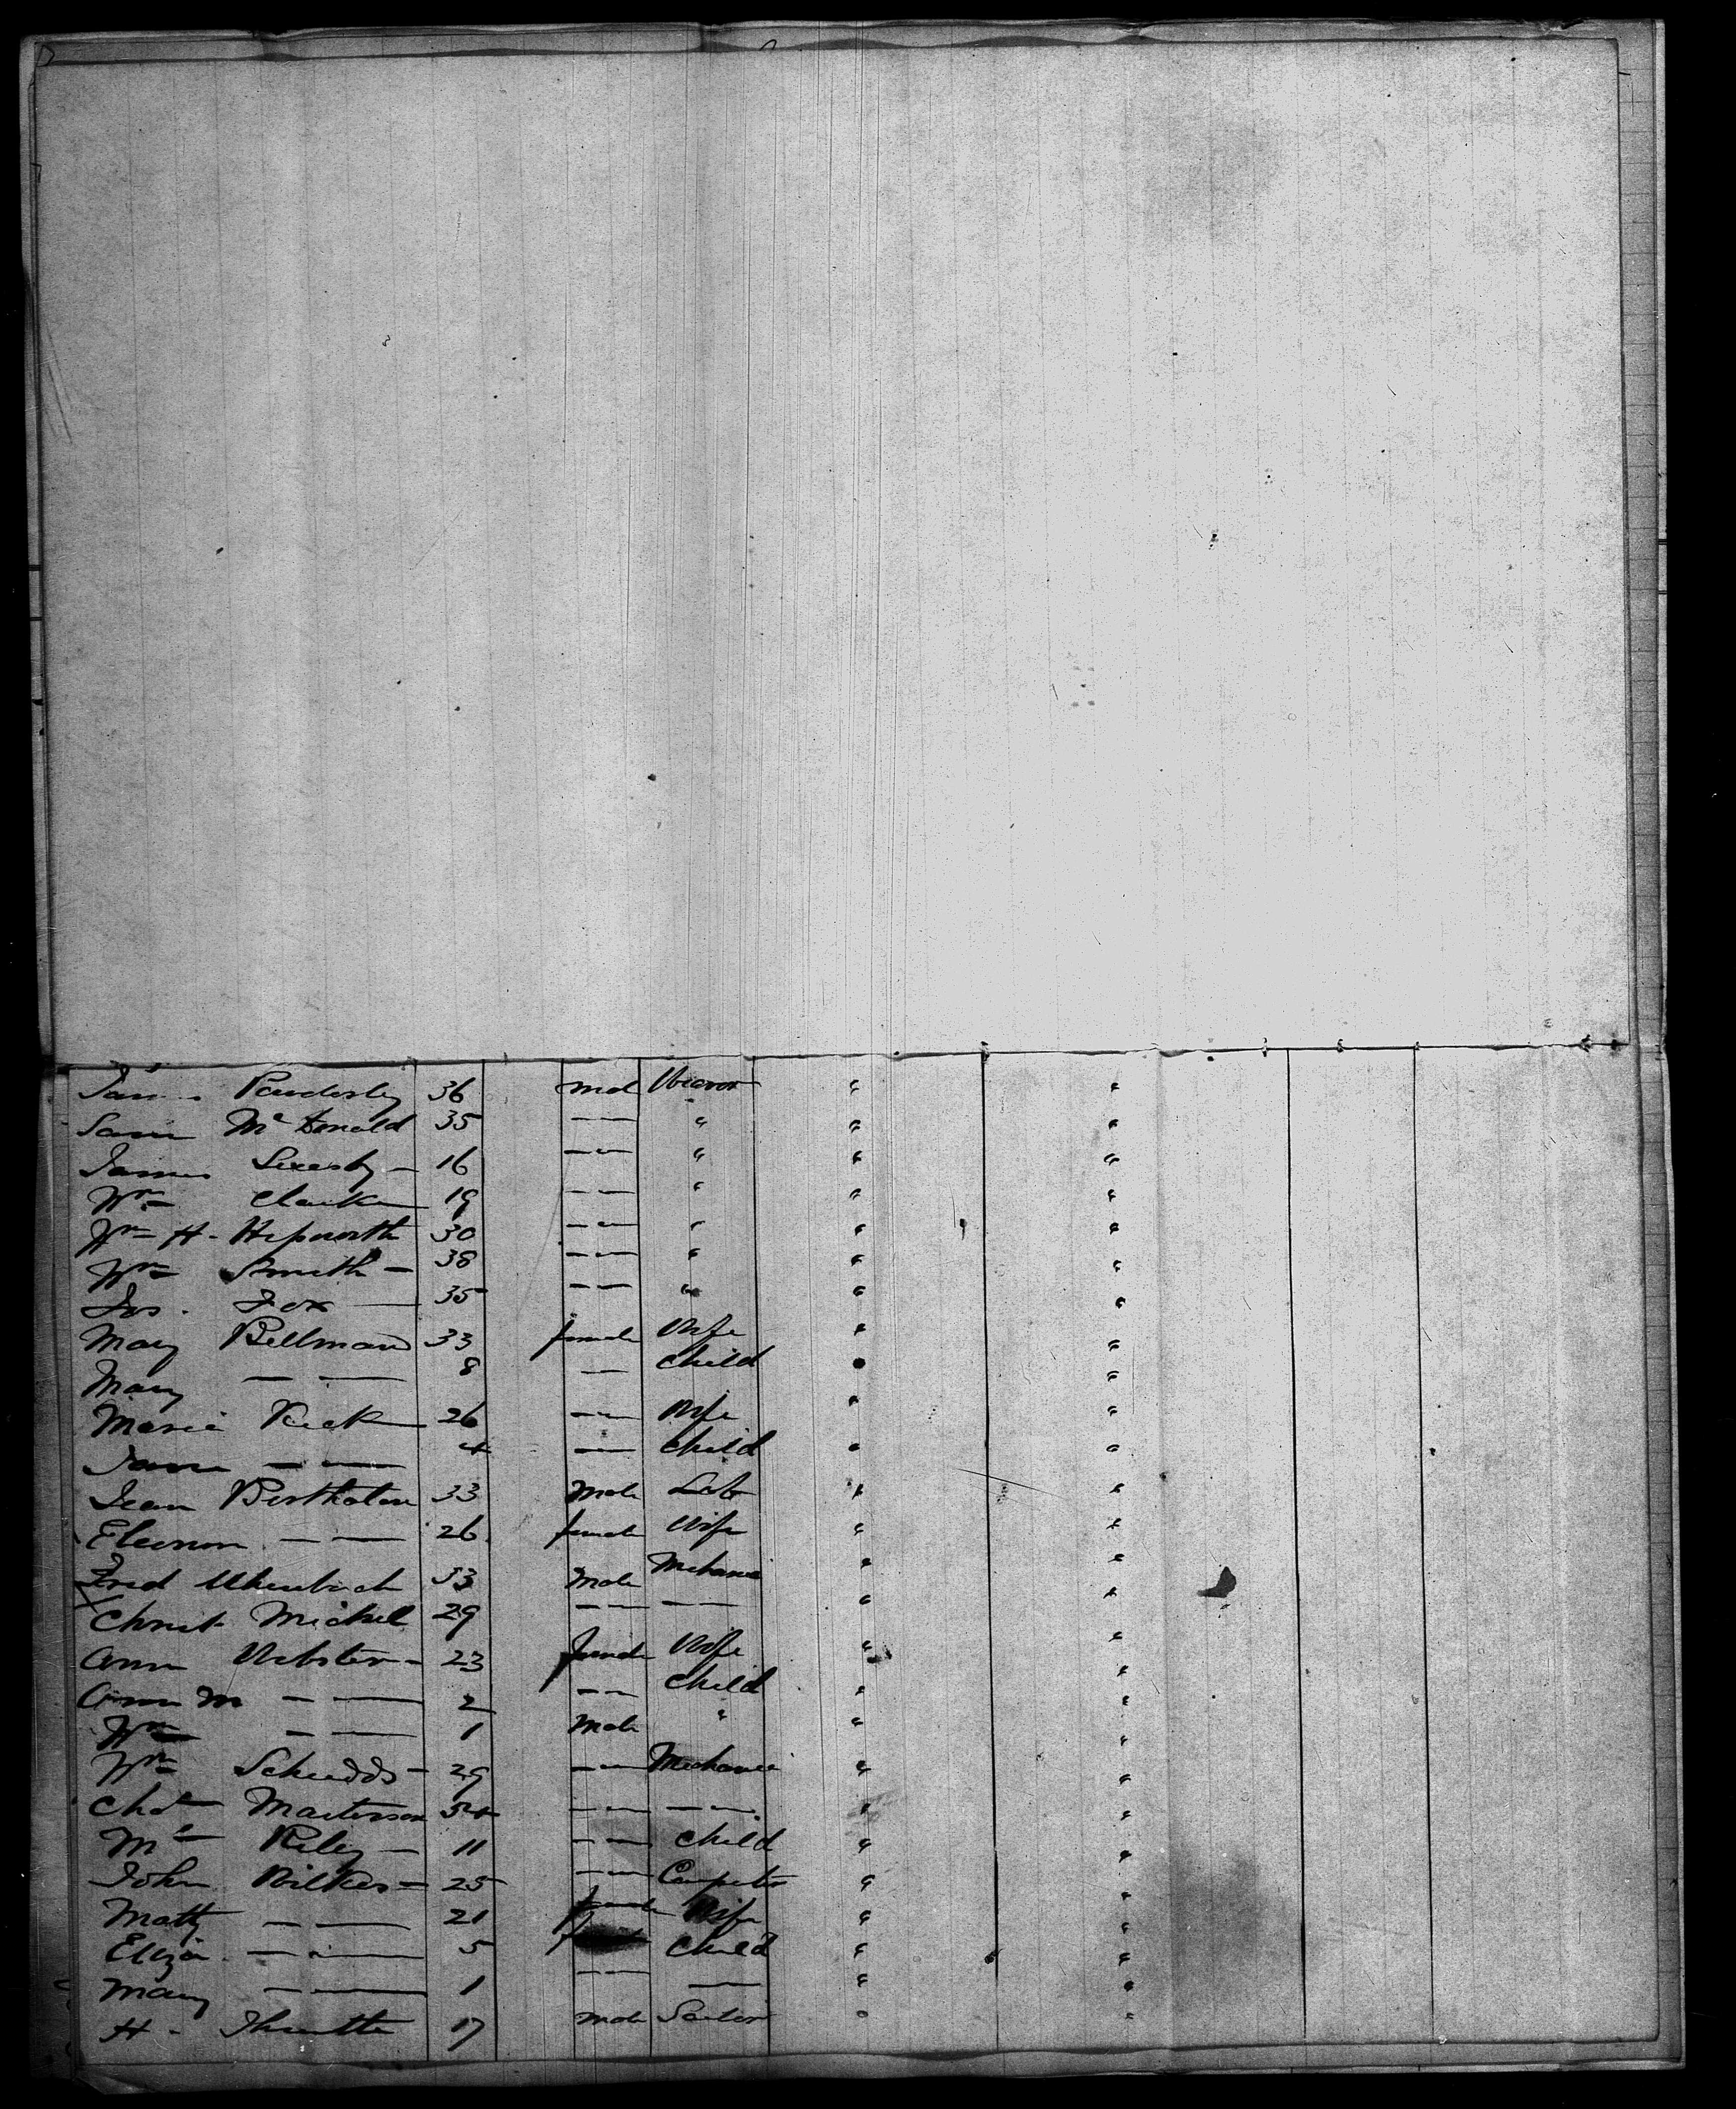 36 male Weaver " "
Sam McDonald 35 — — " " "
James 16 — — " " "
Wm Clarke 19 — — " " "
Wm H. Hepworth 30 — — " " "
Wm Smith — 38 — — " " "
Jos. Fox — 35 — — " " "
Mary Bellman 33 female Wife " "
Mary — — 8 — Child " "
Maria 26 — — Wife " "
Jane — — 4 — — Child " "
Jean Bertholon 33 Male Lab " "
Eleonor — — 26 female Wife " "
Fred 33 Male Mechanic " "
X Christ. Michel 29 — — — — " "
Ann Webster — 23 female Wife " "
Ann M — — 2 — — Child " "
Wm — — 1 Male " " "
Wm 29 — — Mechanic " "
Chas Masterson 54 — — — — " "
Riley — 11 — — Child " "
John Wilkes — 25 — — Carpenter " "
Matty — — 21 female Wife " "
Eliza — — 5 Child " "
Mary — — 1 — — — " "
H. 17 male Sailor " "